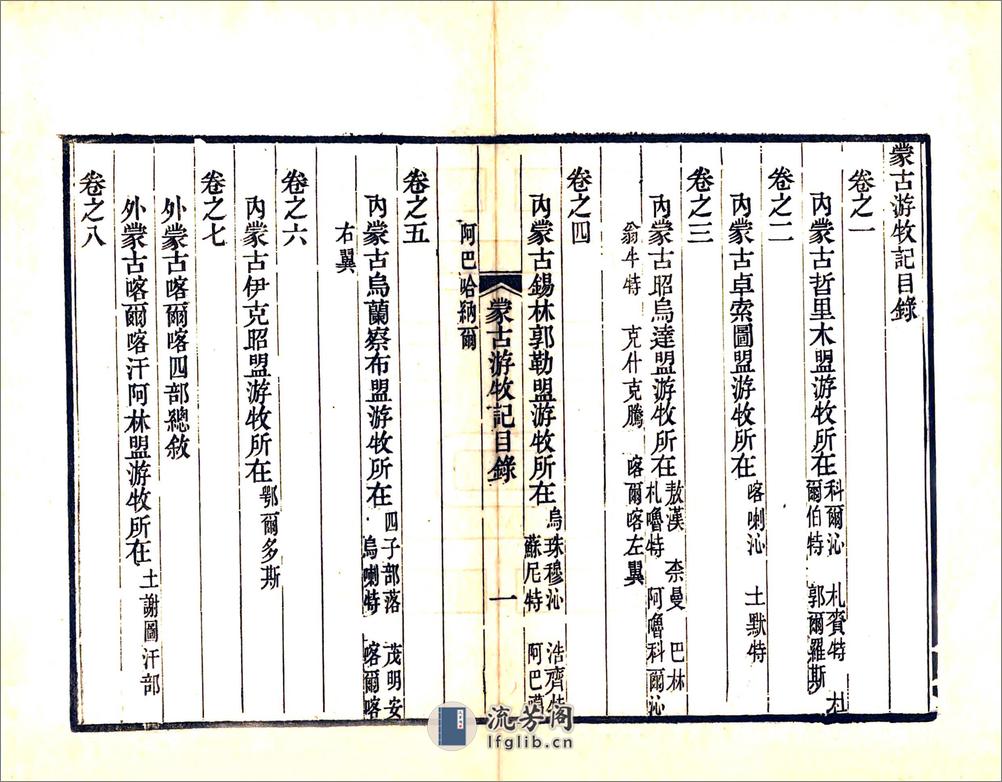 蒙古游牧記目錄
卷之一
內蒙古哲里木盟游牧所在 科爾沁 札賚特 札
爾伯特 郭爾羅斯
卷之二
內蒙古卓索圖盟游牧所在 喀喇沁 土默特
卷之三
內蒙古昭烏達盟游牧所在 敖漢 柰曼 巴林
札嚕特 阿嚕科爾沁
翁牛特 克什克騰 喀爾喀左翼
卷之四
內蒙古錫林郭勒盟游牧所在 烏珠穆沁 浩齊特
蘇尼特 阿巴
蒙古游牧記目錄 一
阿巴哈納爾
卷之五
內蒙古烏蘭察布盟游牧所在 四子部落 茂明安
烏喇特 喀爾喀
右翼
卷之六
內蒙古伊克昭盟游牧所在 鄂爾多斯
卷之七
外蒙古喀爾喀四部總敘
外蒙古喀爾喀汗阿林盟游牧所在 土謝圖汗部
卷之八
流芳阁
lfglib.cn